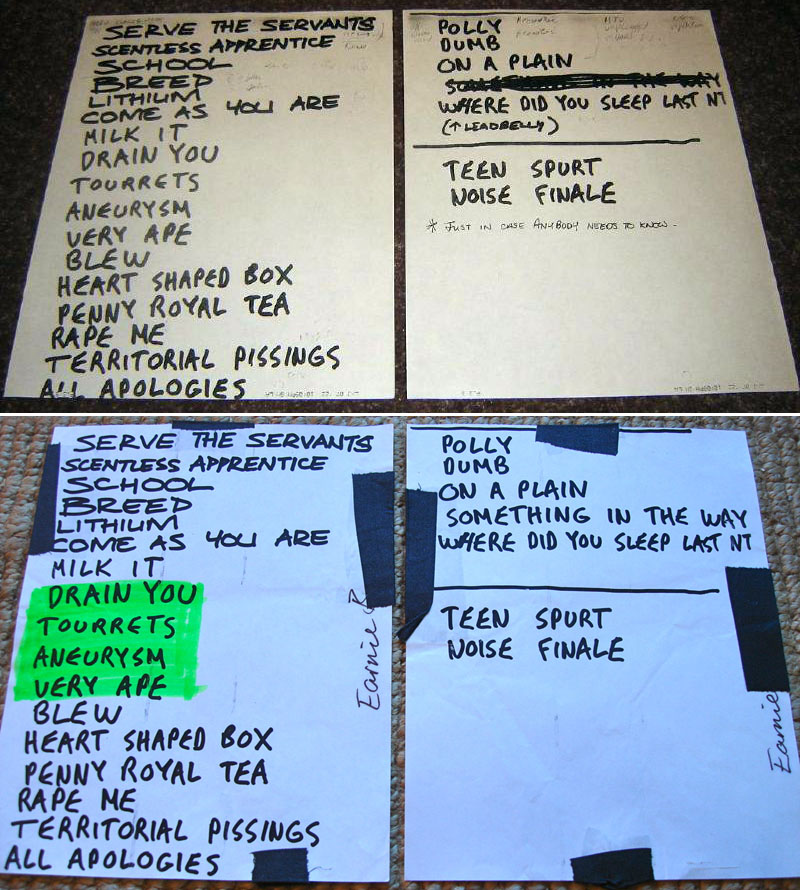 SERVE THE SERVANTS
SCENTLESS APPRENTICE
SCHOOL
BREED
LITHIUM
COME AS YOU ARE
MILK IT
DRAIN YOU
TOURRETS
ANEURYSM
VERY APE
BLEW
HEART SHAPED BOX
PENNY ROYAL TEA
RAPE ME
TERRITORIAL PISSINGS
ALL APOLOGIES
POLLY
DUMB
ON A PLAIN
SOMETHING IN THE WAY
WHERE DID YOU SLEEP LAST NT
(↑ LEADBELLY)
TEEN SPURT
NOISE FINALE
* JUST IN CASE ANYBODY NEEDS TO KNOW.
SERVE THE SERVANTS
SCENTLESS APPRENTICE
SCHOOL
BREED
LITHIUM
COME AS YOU ARE
MILK IT
DRAIN YOU
TOURRETS
ANEURYSM
VERY APE
BLEW
HEART SHAPED BOX
PENNY ROYAL TEA
RAPE ME
TERRITORIAL PISSINGS
ALL APOLOGIES
Earnie B
POLLY
DUMB
ON A PLAIN
SOMETHING IN THE WAY
WHERE DID YOU SLEEP LAST NT
TEEN SPURT
NOISE FINALE
Earnie